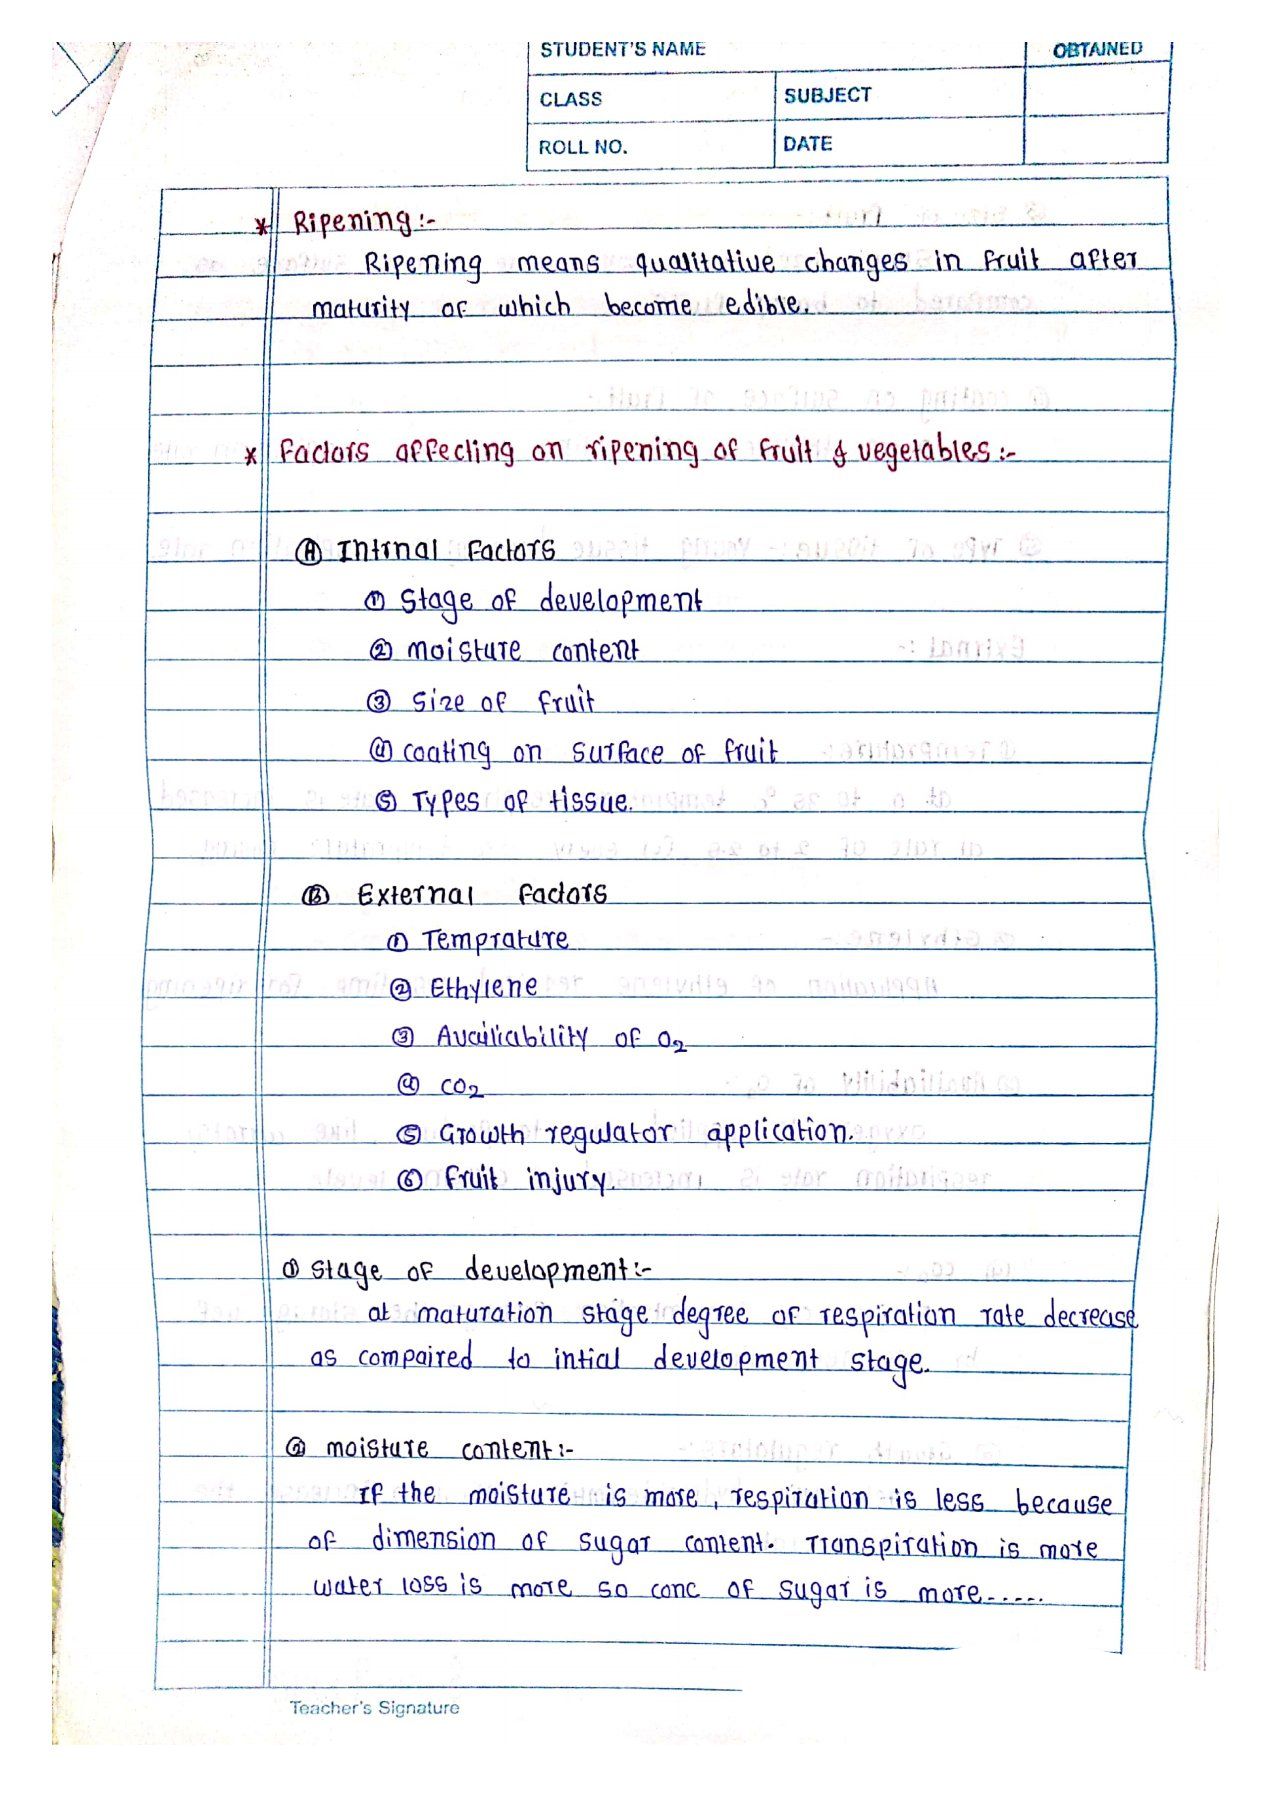 STUDENT'S NAME
OBTAINED
CLASS
SUBJECT
ROLL NO.
DATE
* Ripening :-
Ripening means qualitative changes in fruit after
maturity of which become edible.
* Factors affecting on ripening of fruit & vegetables :-
Ⓐ Intrnal Factors
① Stage of development
② moisture content
③ Size of fruit
④ coating on surface of fruit
⑤ Types of tissue.
Ⓑ External factors
① Temprature
② Ethylene
③ Availiability of O₂
④ CO₂
⑤ Growth regulator application.
⑥ fruit injury.
① Stage of development :-
at maturation stage degree of respiration rate decrease
as compaired to intial development stage.
② moisture content :-
If the moisture is more, respiration is less because
of dimension of sugar content. Transpiration is more
water loss is more so conc of sugar is more......
Teacher's Signature